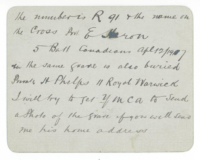 The number is R 91 & the name on
the Cross Pte E Heron
5 Batt Canadians Apl 12/1917
in the same grave is also buried
Private H Phelps 11 Royal Warwick
I will try to get YMCA to send
a Photo of the grave if you will send
me his home address